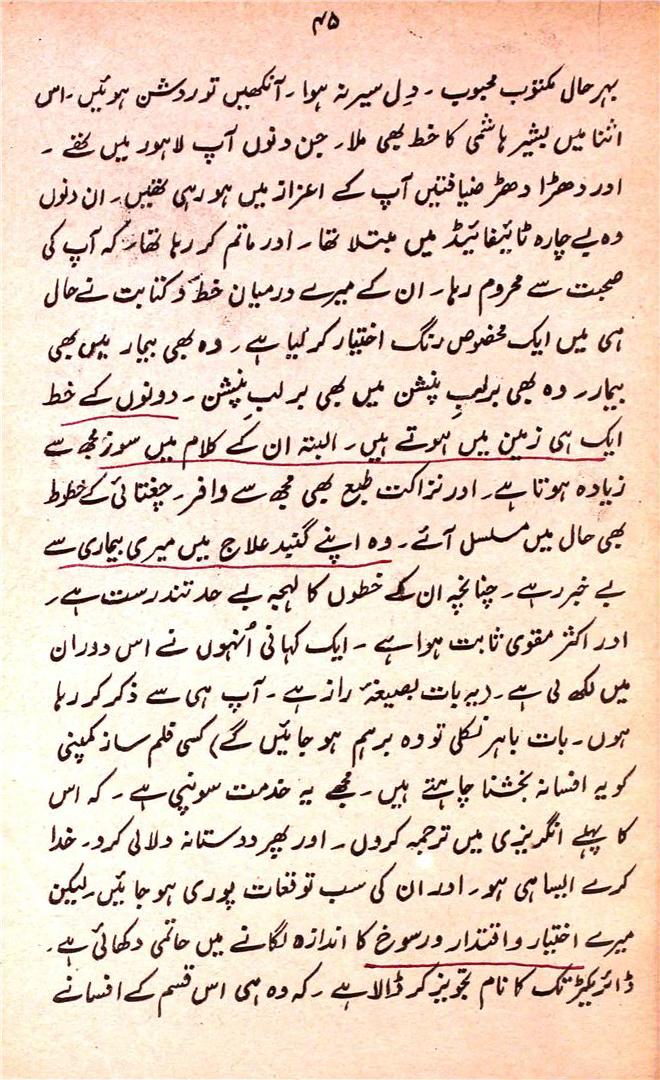 ۴۵
بہرحال مکتوب محبوب ۔ دل سیر نہ ہوا ۔ آنکھیں تو روشن ہوئیں ۔ اس
اثنا میں بشیر ہاشمی کا خط بھی ملا ۔ جن دنوں آپ لاہور میں تھے ۔
اور دھڑا دھڑ ضیافتیں آپ کے اعزاز میں ہو رہی تھیں ۔ ان دنوں
وہ بے چارہ ٹائیفائیڈ میں مبتلا تھا ۔ اور ماتم کر رہا تھا ۔ کہ آپ کی
صحبت سے محروم رہا ۔ ان کے میرے درمیان خط و کتابت نے حال
ہی میں ایک مخصوص رنگ اختیار کر لیا ہے ۔ وہ بھی بیمار میں بھی
بیمار ۔ وہ بھی برلبِ پنشن میں بھی برلبِ پنشن ۔ دونوں کے خط
ایک ہی زمین میں ہوتے ہیں ۔ البتہ ان کے کلام میں سوز مجھ سے
زیادہ ہوتا ہے ۔ اور نزاکت طبع بھی مجھ سے وافر ۔ چغتائی کے خطوط
بھی حال میں مسلسل آئے ۔ وہ اپنے گنبد علاج میں میری بیماری سے
بے خبر رہے ۔ چنانچہ ان کے خطوں کا لہجہ بے حد تندرست ہے ۔
اور اکثر مقوی ثابت ہوا ہے ۔ ایک کہانی اُنہوں نے اس دوران
میں لکھ لی ہے ۔ (یہ بات بصیغۂ راز ہے ۔ آپ ہی سے ذکر کر رہا
ہوں ۔ بات باہر نکلی تو وہ برہم ہو جائیں گے) کسی فلم ساز کمپنی
کو یہ افسانہ بخشنا چاہتے ہیں ۔ مجھے یہ خدمت سونپی ہے ۔ کہ اس
کا پہلے انگریزی میں ترجمہ کروں ۔ اور پھر دوستانہ دلالی کرو ۔ خدا
کرے ایسا ہی ہو ۔ اور ان کی سب توقعات پوری ہو جائیں ۔ لیکن
میرے اختیار و اقتدار و رسوخ کا اندازہ لگانے میں حاتمی دکھائی ہے ۔
ڈائریکٹر تک کا نام تجویز کر ڈالا ہے ۔ کہ وہ ہی اس قسم کے افسانے